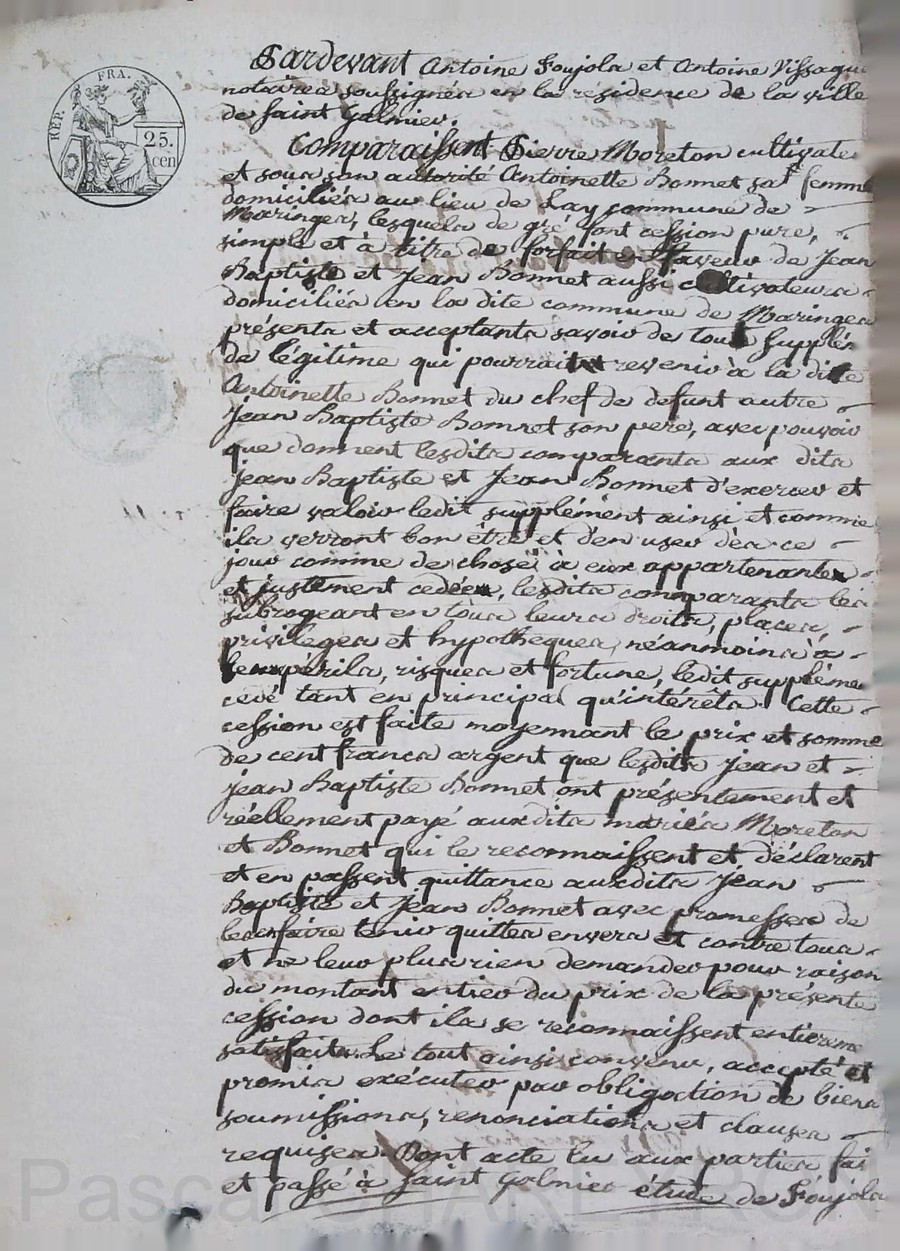 REP. FRA.
25.
cen
Pardevant Antoine Foujola et Antoine Vissagu
notaires soussignés en la residence de la ville
de Saint Galmier.
Comparaissent Pierre Moreton cultivate
et sous son autorité Antoinette Bonnet sa femme
domiciliés au lieu de Lay commune de
Maringes, lesquels de gré font cession pure,
simple et à titre de forfait en faveur de Jean
Baptiste et Jean Bonnet aussi cultivateurs
domiciliés en la dite commune de Maringes
présents et acceptants savoir de tout supplém
de légitime qui pourrait revenir à la dite
Antoinette Bonnet du chef de defunt autre
Jean Baptiste Bonnet son père, avec pouvoir
que donnent lesdits comparants aux dits
Jean Baptiste et Jean Bonnet d'exercer et
faire valoir ledit supplément ainsi et comme
ils verront bon être et d'en user dès ce
jour comme de chose à eux appartenante
et justement cedée, lesdits comparants les
subrogeant en tous leurs droits, places,
privileges et hypotheques, néanmoins à
leurs périls, risques et fortune, ledit suppléme
cedé tant en principal qu'intérêts. Cette
cession est faite moyennant le prix et somme
de cent francs argent que lesdits Jean et
Jean Baptiste Bonnet ont présentement et
réellement payé auxdits mariés Moreton
et Bonnet qui le reconnaissent et déclarent
et en passent quittance auxdits Jean
Baptiste et Jean Bonnet avec promesses de
les en faire tenir quittes envers et contre tous
et ne leur plus rien demander pour raison
du montant entier du prix de la présente
cession dont ils se reconnaissent entierem
satisfaits. Le tout ainsi convenu, accepté et
promis exécuter par obligation de biens
soumissions, renonciations et clauses
requises. Dont acte lu aux parties fai
et passé à Saint Galmier étude de Foujols
Pascal CHARETRON